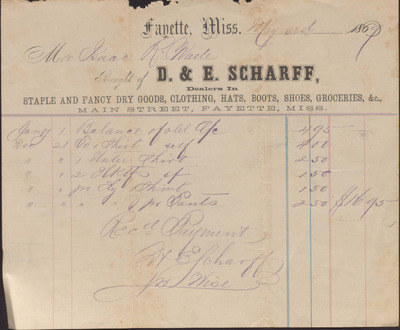 Fayette, Miss. 186
Mr Isaac R. Wade
Bought of D. & E. SCHARFF,
Dealers In
STAPLE AND FANCY DRY GOODS, CLOTHING, HATS, BOOTS, SHOES, GROCERIES, &c.,
MAIN STREET, FAYETTE, MISS.
1 Balance of old A/c 4 95
21 Shirt self 4 00
" 1 Under Shirt 2 50
" 1 2 Hkfs 1 50
" 1 pr Shirt 1 50
" " 1 pr Pants 2 50 $16 95
Recd Payment
D & E Scharff
Wise